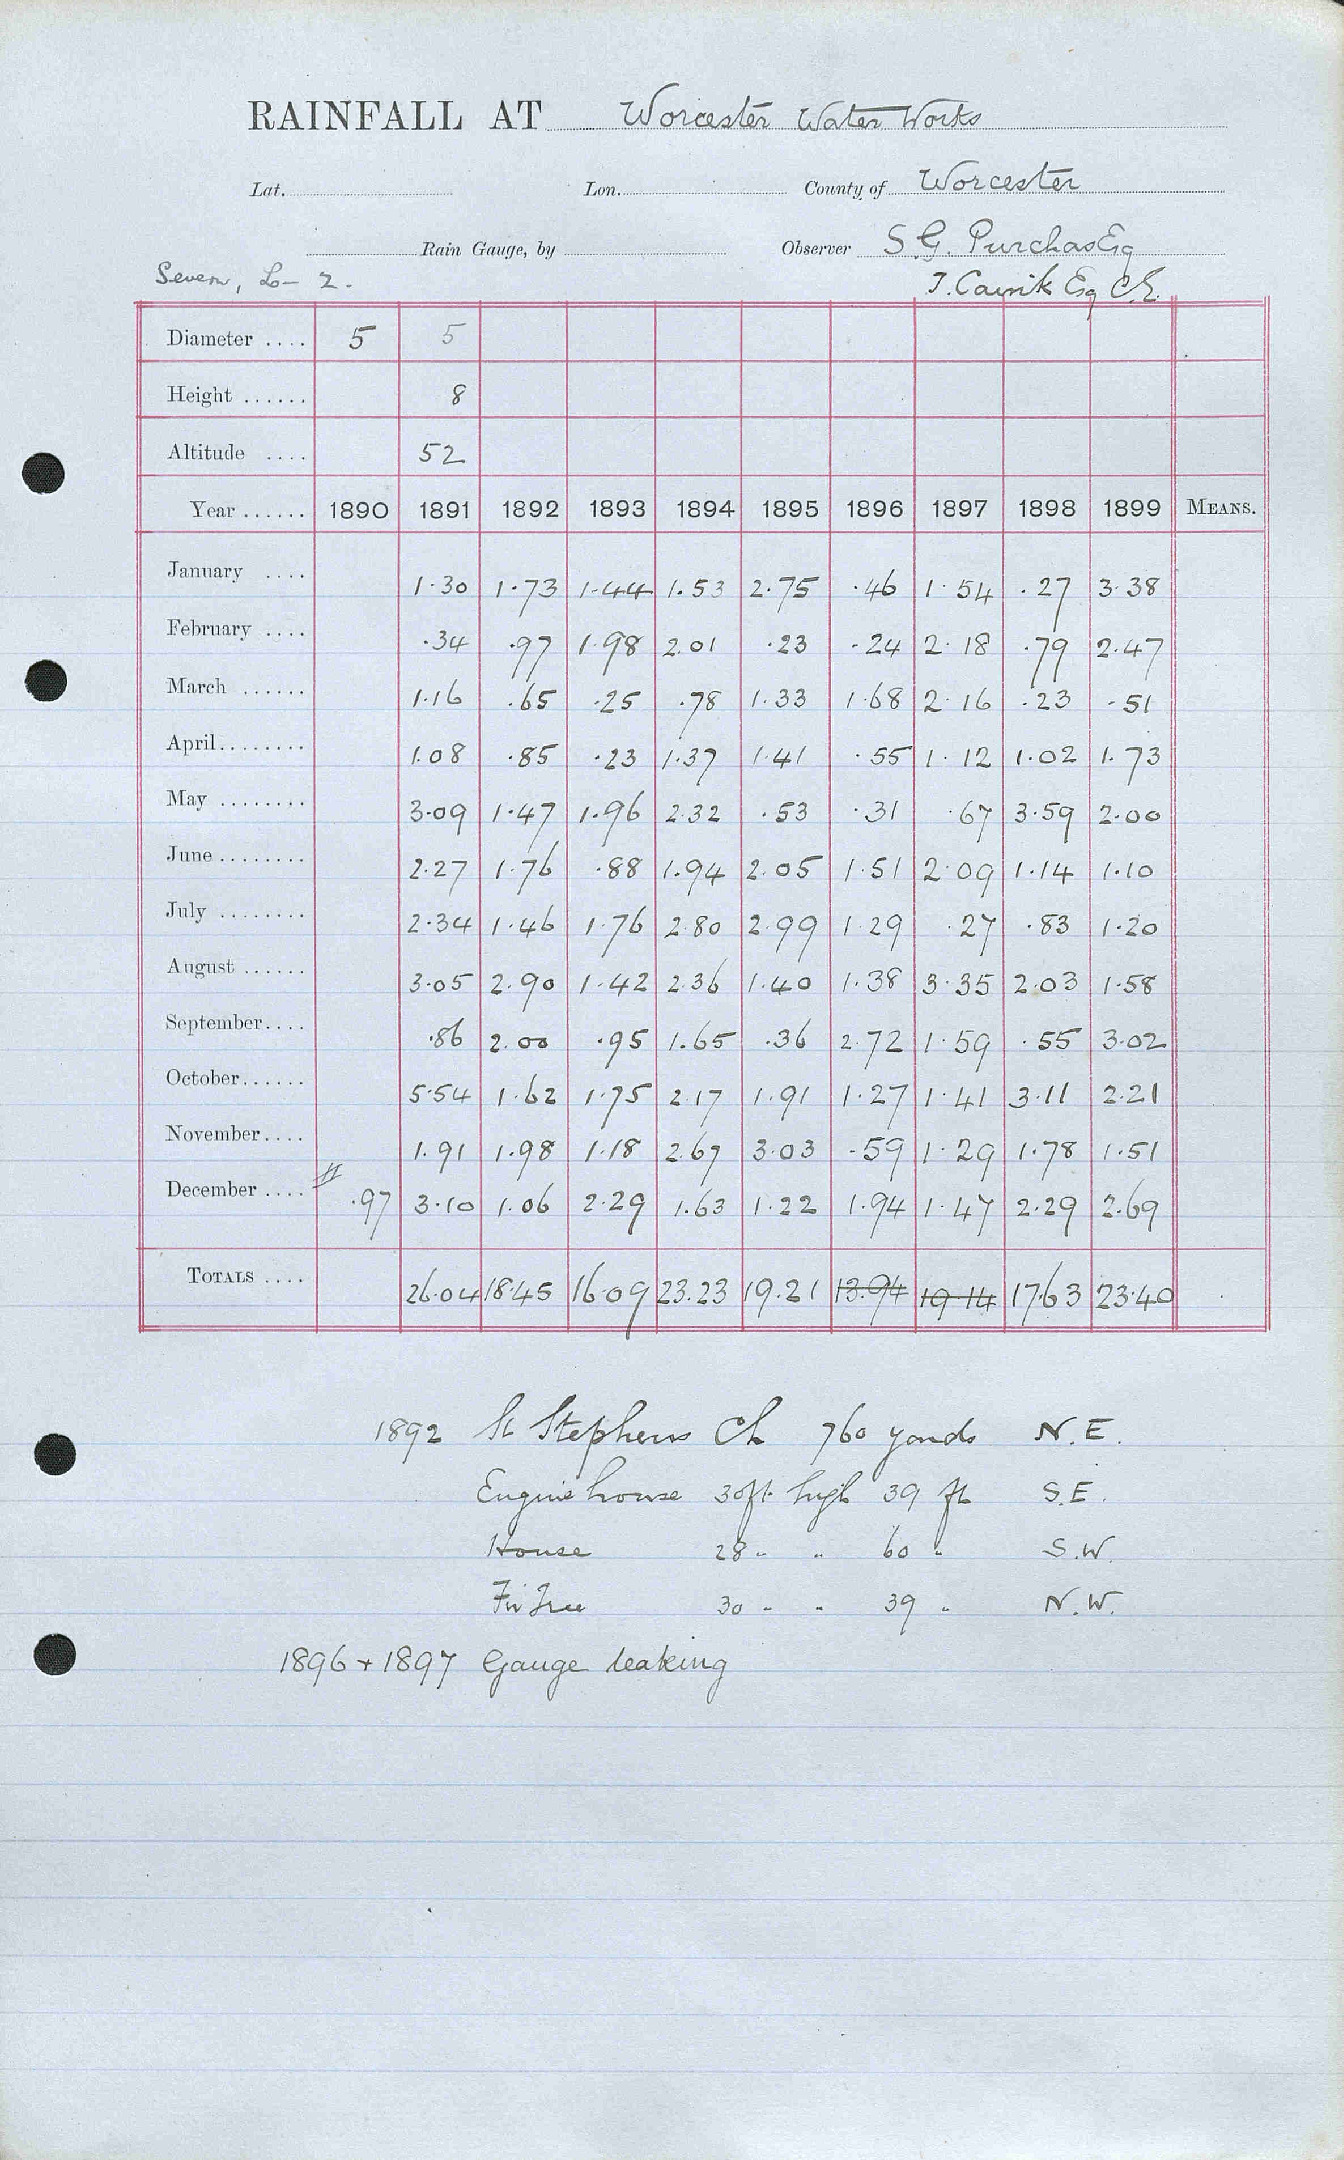 RAINFALL AT Worcester Water Works
Lat. Lon. County of Worcester
Rain Gauge, by Observer S G. Purchas Esq
Severn, 2.
T. Esq C.E.
Diameter .... 5 5
Height ...... 8
Altitude .... 52
Year ...... 1890 1891 1892 1893 1894 1895 1896 1897 1898 1899 MEANS.
January .... 1.30 1.73 1.44 1.53 2.75 .46 1.54 .27 3.38
February .... .34 .97 1.98 2.01 .23 .24 2.18 .79 2.47
March ...... 1.16 .65 .25 .78 1.33 1.68 2.16 .23 .51
April ........ 1.08 .85 .23 1.37 1.41 .55 1.12 1.02 1.73
May ........ 3.09 1.47 1.96 2.32 .53 .31 .67 3.59 2.00
June ........ 2.27 1.76 .88 1.94 2.05 1.51 2.09 1.14 1.10
July ........ 2.34 1.46 1.76 2.80 2.99 1.29 .27 .83 1.20
August ...... 3.05 2.90 1.42 2.36 1.40 1.38 3.35 2.03 1.58
September .... .86 2.00 .95 1.65 .36 2.72 1.59 .55 3.02
October ...... 5.54 1.62 1.75 2.17 1.91 1.27 1.41 3.11 2.21
November .... 1.91 1.98 1.18 2.67 3.03 .59 1.29 1.78 1.51
December .... # .97 3.10 1.06 2.29 1.63 1.22 1.94 1.47 2.29 2.69
TOTALS .... 26.04 18.45 16.09 23.23 19.21 13.94 19.14 17.63 23.40
1892 St Stephens Ch 760 yards N.E.
Engine house 30 ft high 39 ft S.E.
House 28 " " 60 " S.W.
Fir Tree 30 " " 39 " N.W.
1896 + 1897 Gauge leaking